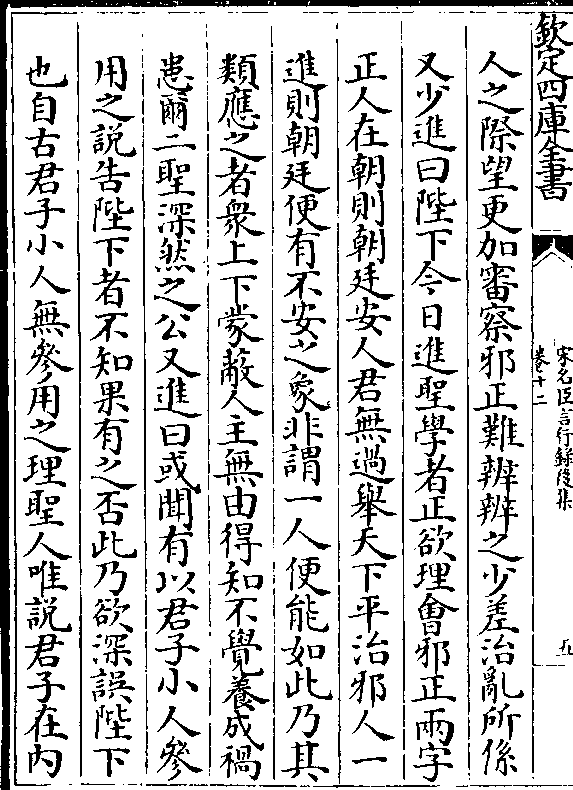 欽定四庫全書
宋名臣言行錄後集
卷十二
五
人之際望更加審察邪正難辨辨之少差治亂所係
又少進曰陛下今日進聖學者正欲理會邪正兩字
正人在朝則朝廷安人君無過舉天下平治邪人一
進則朝廷便有不安之象非謂一人便能如此乃其
類應之者衆上下蒙蔽人主無由得知不覺養成禍
患爾二聖深然之公又進曰或聞有以君子小人參
用之説告陛下者不知果有之否此乃欲深誤陛下
也自古君子小人無參用之理聖人唯説君子在內